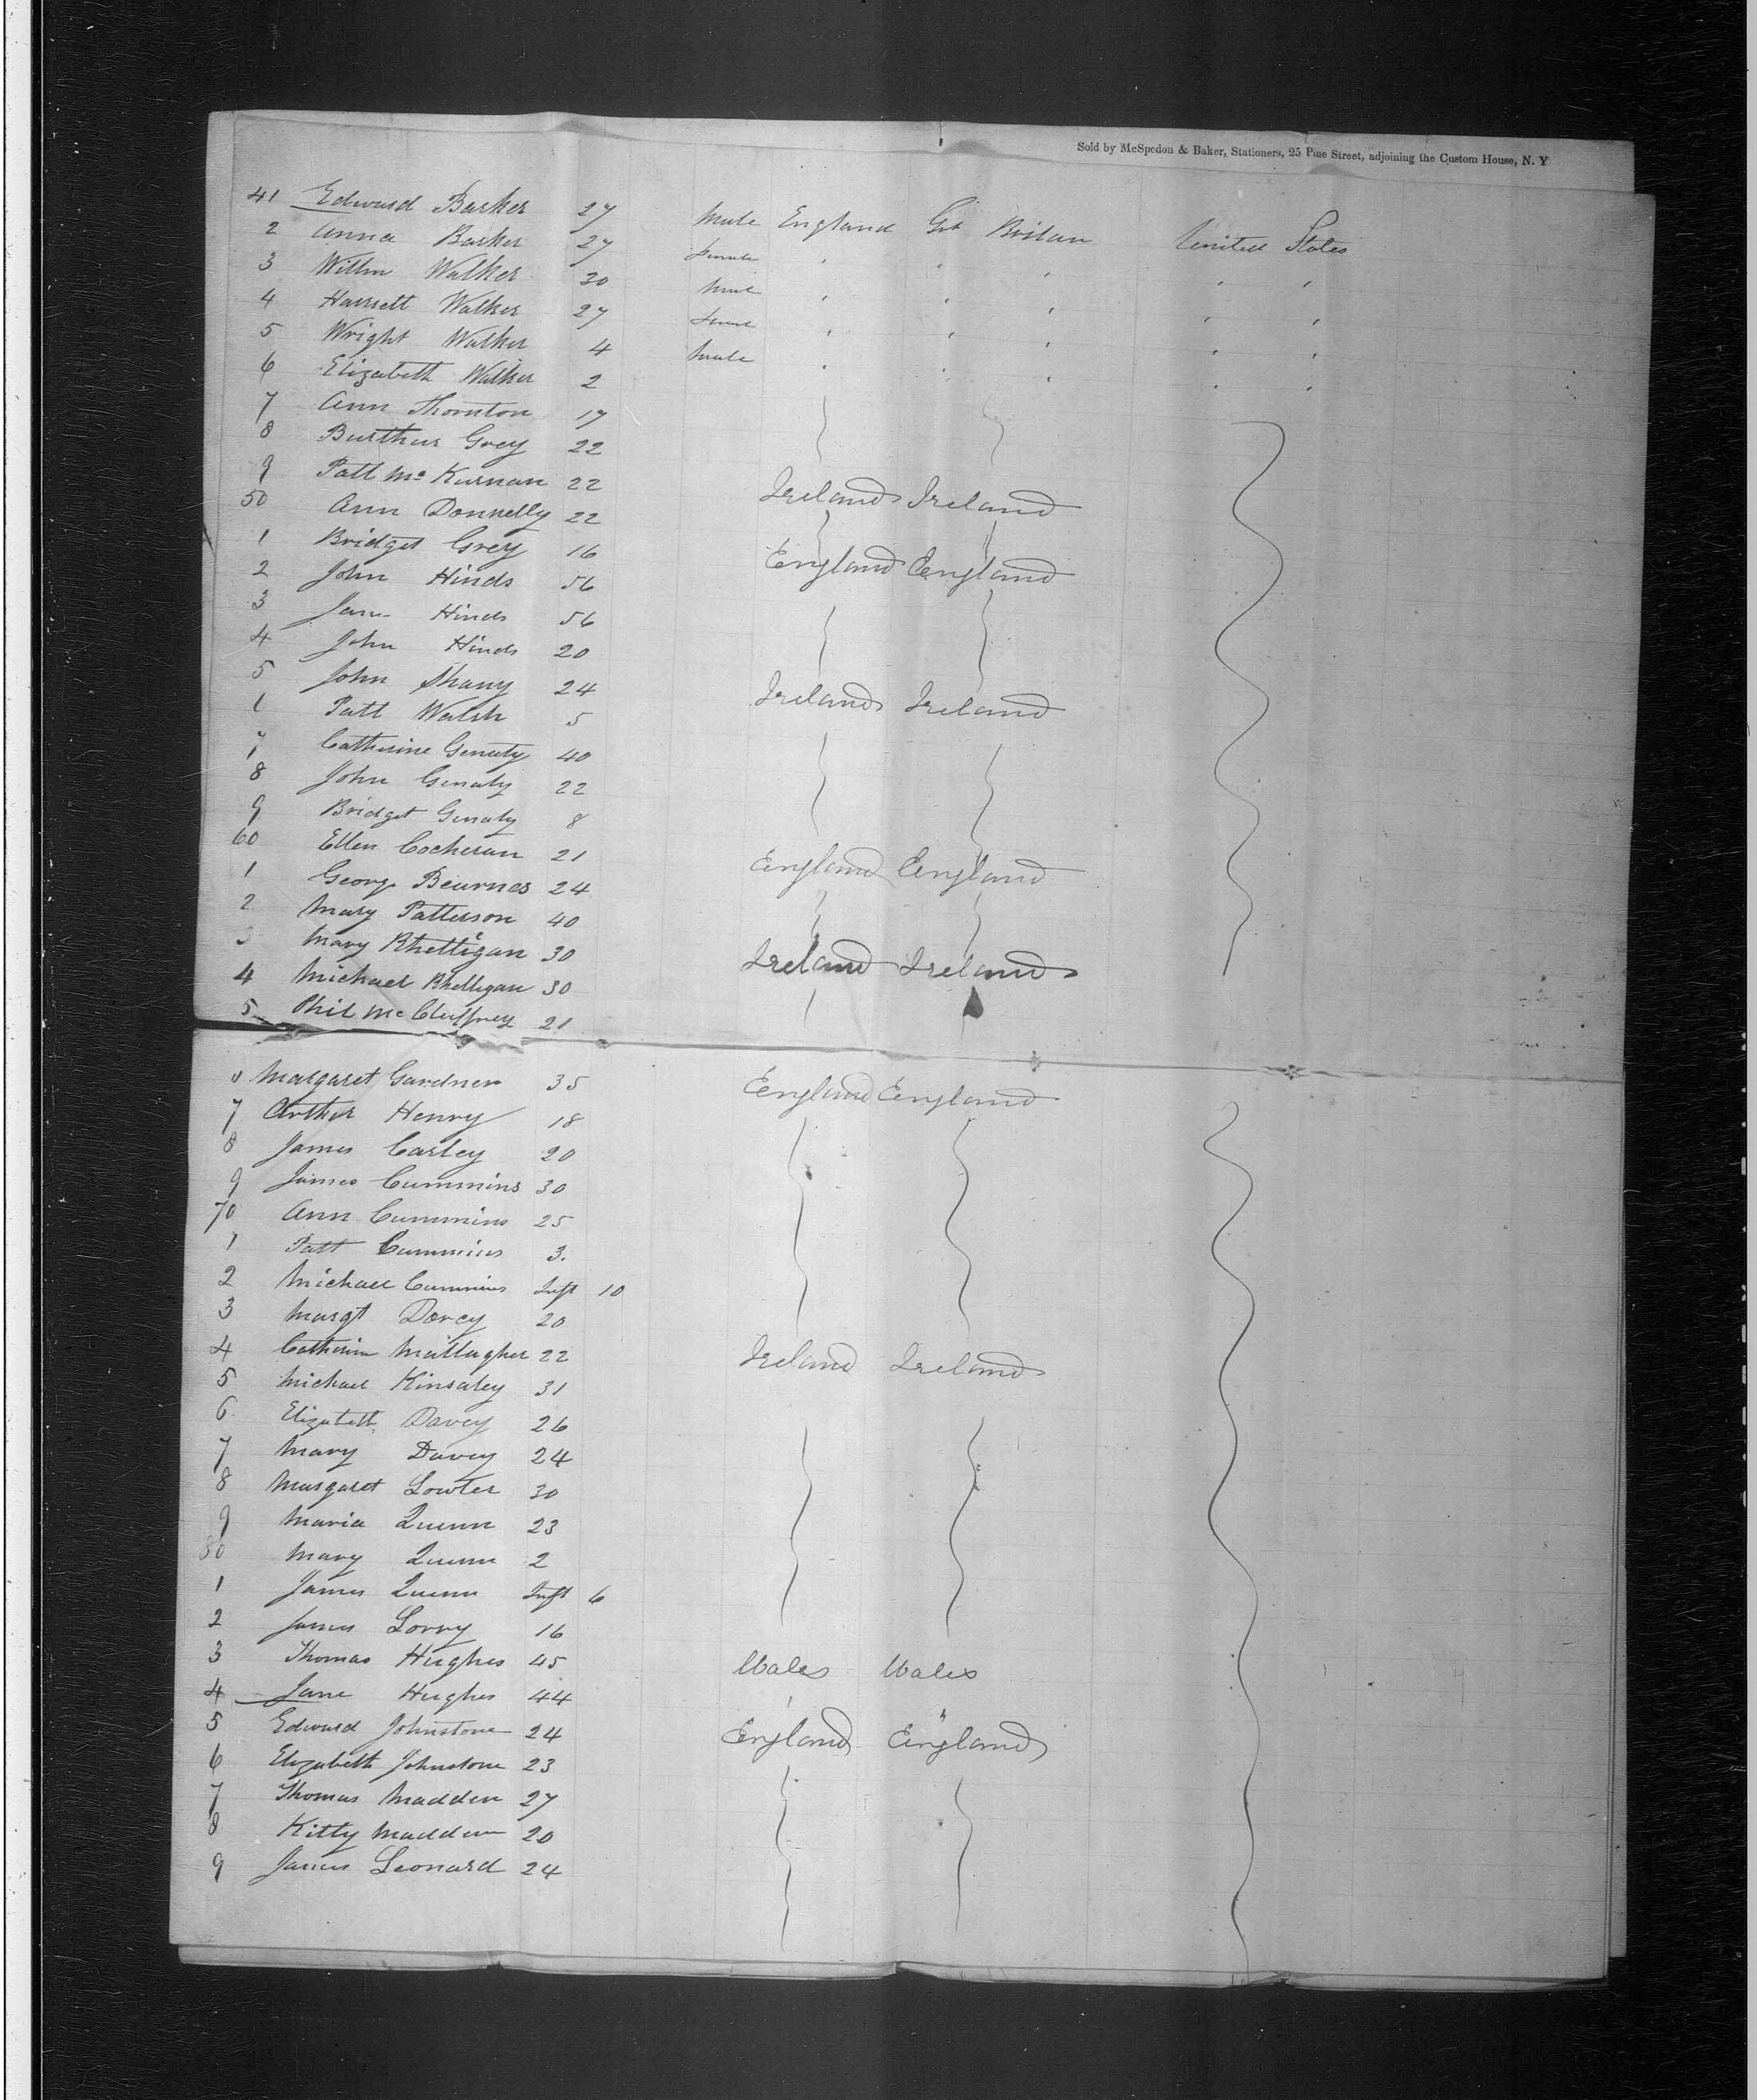 Sold by McSpedon & Baker, Stationers, 25 Pine Street, adjoining the Custom House, N. Y
41 Edward Barker 27 Male England Gt Britan United States
2 Anna Barker 27 Female " " " " "
3 Willm Walker 30 Male " " " " "
4 Harriett Walker 27 Female " " " " "
5 Wright Walker 4 Male " " " " "
6 Elizabeth Walker 2
7 Ann Thornton 17
8 Grey 22
9 Patt Mc Kurnan 22 Ireland Ireland
50 Ann Donnelly 22
1 Bridget Grey 16 England England
2 John Hinds 56
3 Jane Hinds 56
4 John Hinds 20
5 John 24 Ireland Ireland
1 Patt Walsh 5
7 Catherine Genaty 40
8 John Genaty 22
9 Bridget Genaty 8
60 Ellen Cocheran 21 England England
1 George Bearnes 24
2 Mary Patterson 40
3 Mary Rhettigan 30 Ireland Ireland
4 Michael Rhettigan 30
5 Phil Mc 21
Margaret Gardner 35 England England
7 Arthur Henry 18
8 James Carley 20
9 James Cummins 30
70 Ann Cummins 25
1 Patt Cummins 3.
2 Michael Cummins Inft 10
3 Margt Darcy 20
4 Catherin Mullagher 22 Ireland Ireland
5 Michael Kinsaley 31
6 Elizabeth Davey 26
7 Mary Davey 24
8 Margaret Lowter 30
9 Maria Quinn 23
80 Mary Quinn 2
1 James Quinn Inft 6
2 James Lorry 16
3 Thomas Hughes 45 Wales Wales
4 Jane Hughes 44 " "
5 Edward Johnstone 24 England England
6 Elizabeth Johnstone 23
7 Thomas Madden 27
8 Kitty Madden 20
9 James Leonard 24